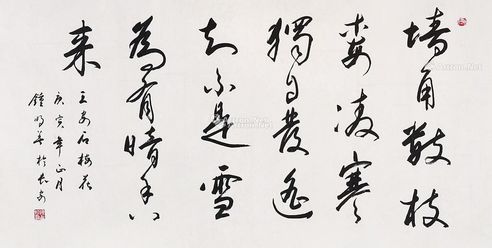 墙角數枝
梅凌寒
獨自開遥
知不是雪
為有暗香
来
王安石梅花
庚寅年正月
鍾明善於長安